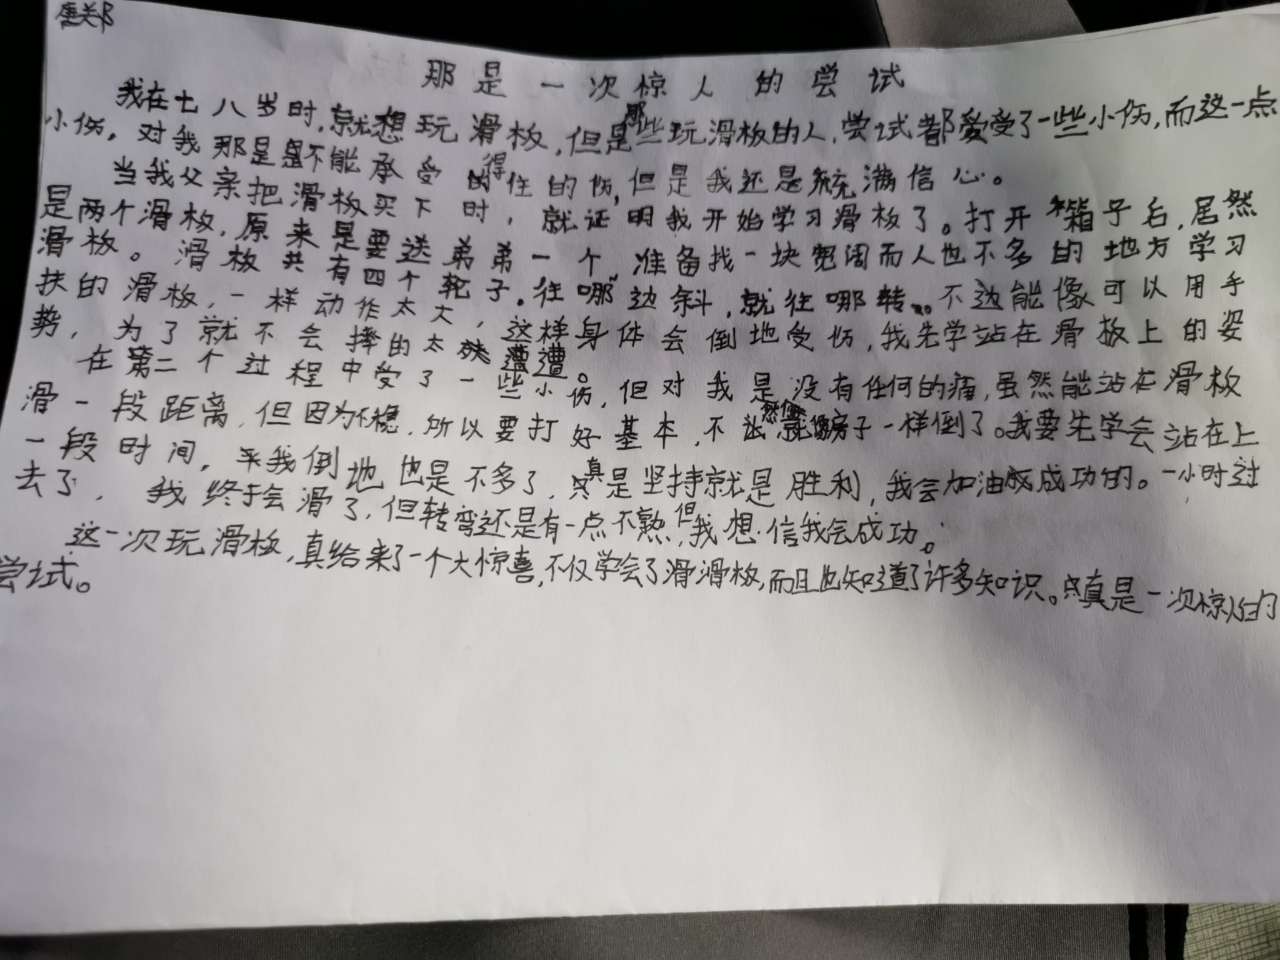 唐关邦
那是一次惊人的尝试
我在七八岁时，就想玩滑板，但是那些玩滑板的人，尝试都受了一些小伤，而这一点
小伤，对我那是不能承受得住的伤，但是我还是充满信心。
当我父亲把滑板买下时，就证明我开始学习滑板了。打开箱子后，居然
是两个滑板，原来是要送弟弟一个，准备找一块宽阔而人也不多的地方学习
滑板。滑板共有四个轮子，往哪边斜，就往哪转。不边能像可以用手
扶的滑板，一样动作太大，这样身体会倒地受伤，我先学站在滑板上的姿
势，为了就不会摔的太遭。
在第二个过程中受了一些小伤，但对我是没有任何的痛，虽然能站在滑板
滑一段距离，但因为不稳，所以要打好基本，不然就像房子一样倒了。我要先学会站在上
一段时间，我倒地也是不多了，真是坚持就是胜利，我会加油成功的。一小时过
去了，我终于会滑了，但转弯还是有一点不熟，但我想信我会成功。
这一次玩滑板，真给来了一个大惊喜，不仅学会了滑滑板，而且也知道了许多知识。真是一次惊人的
尝试。